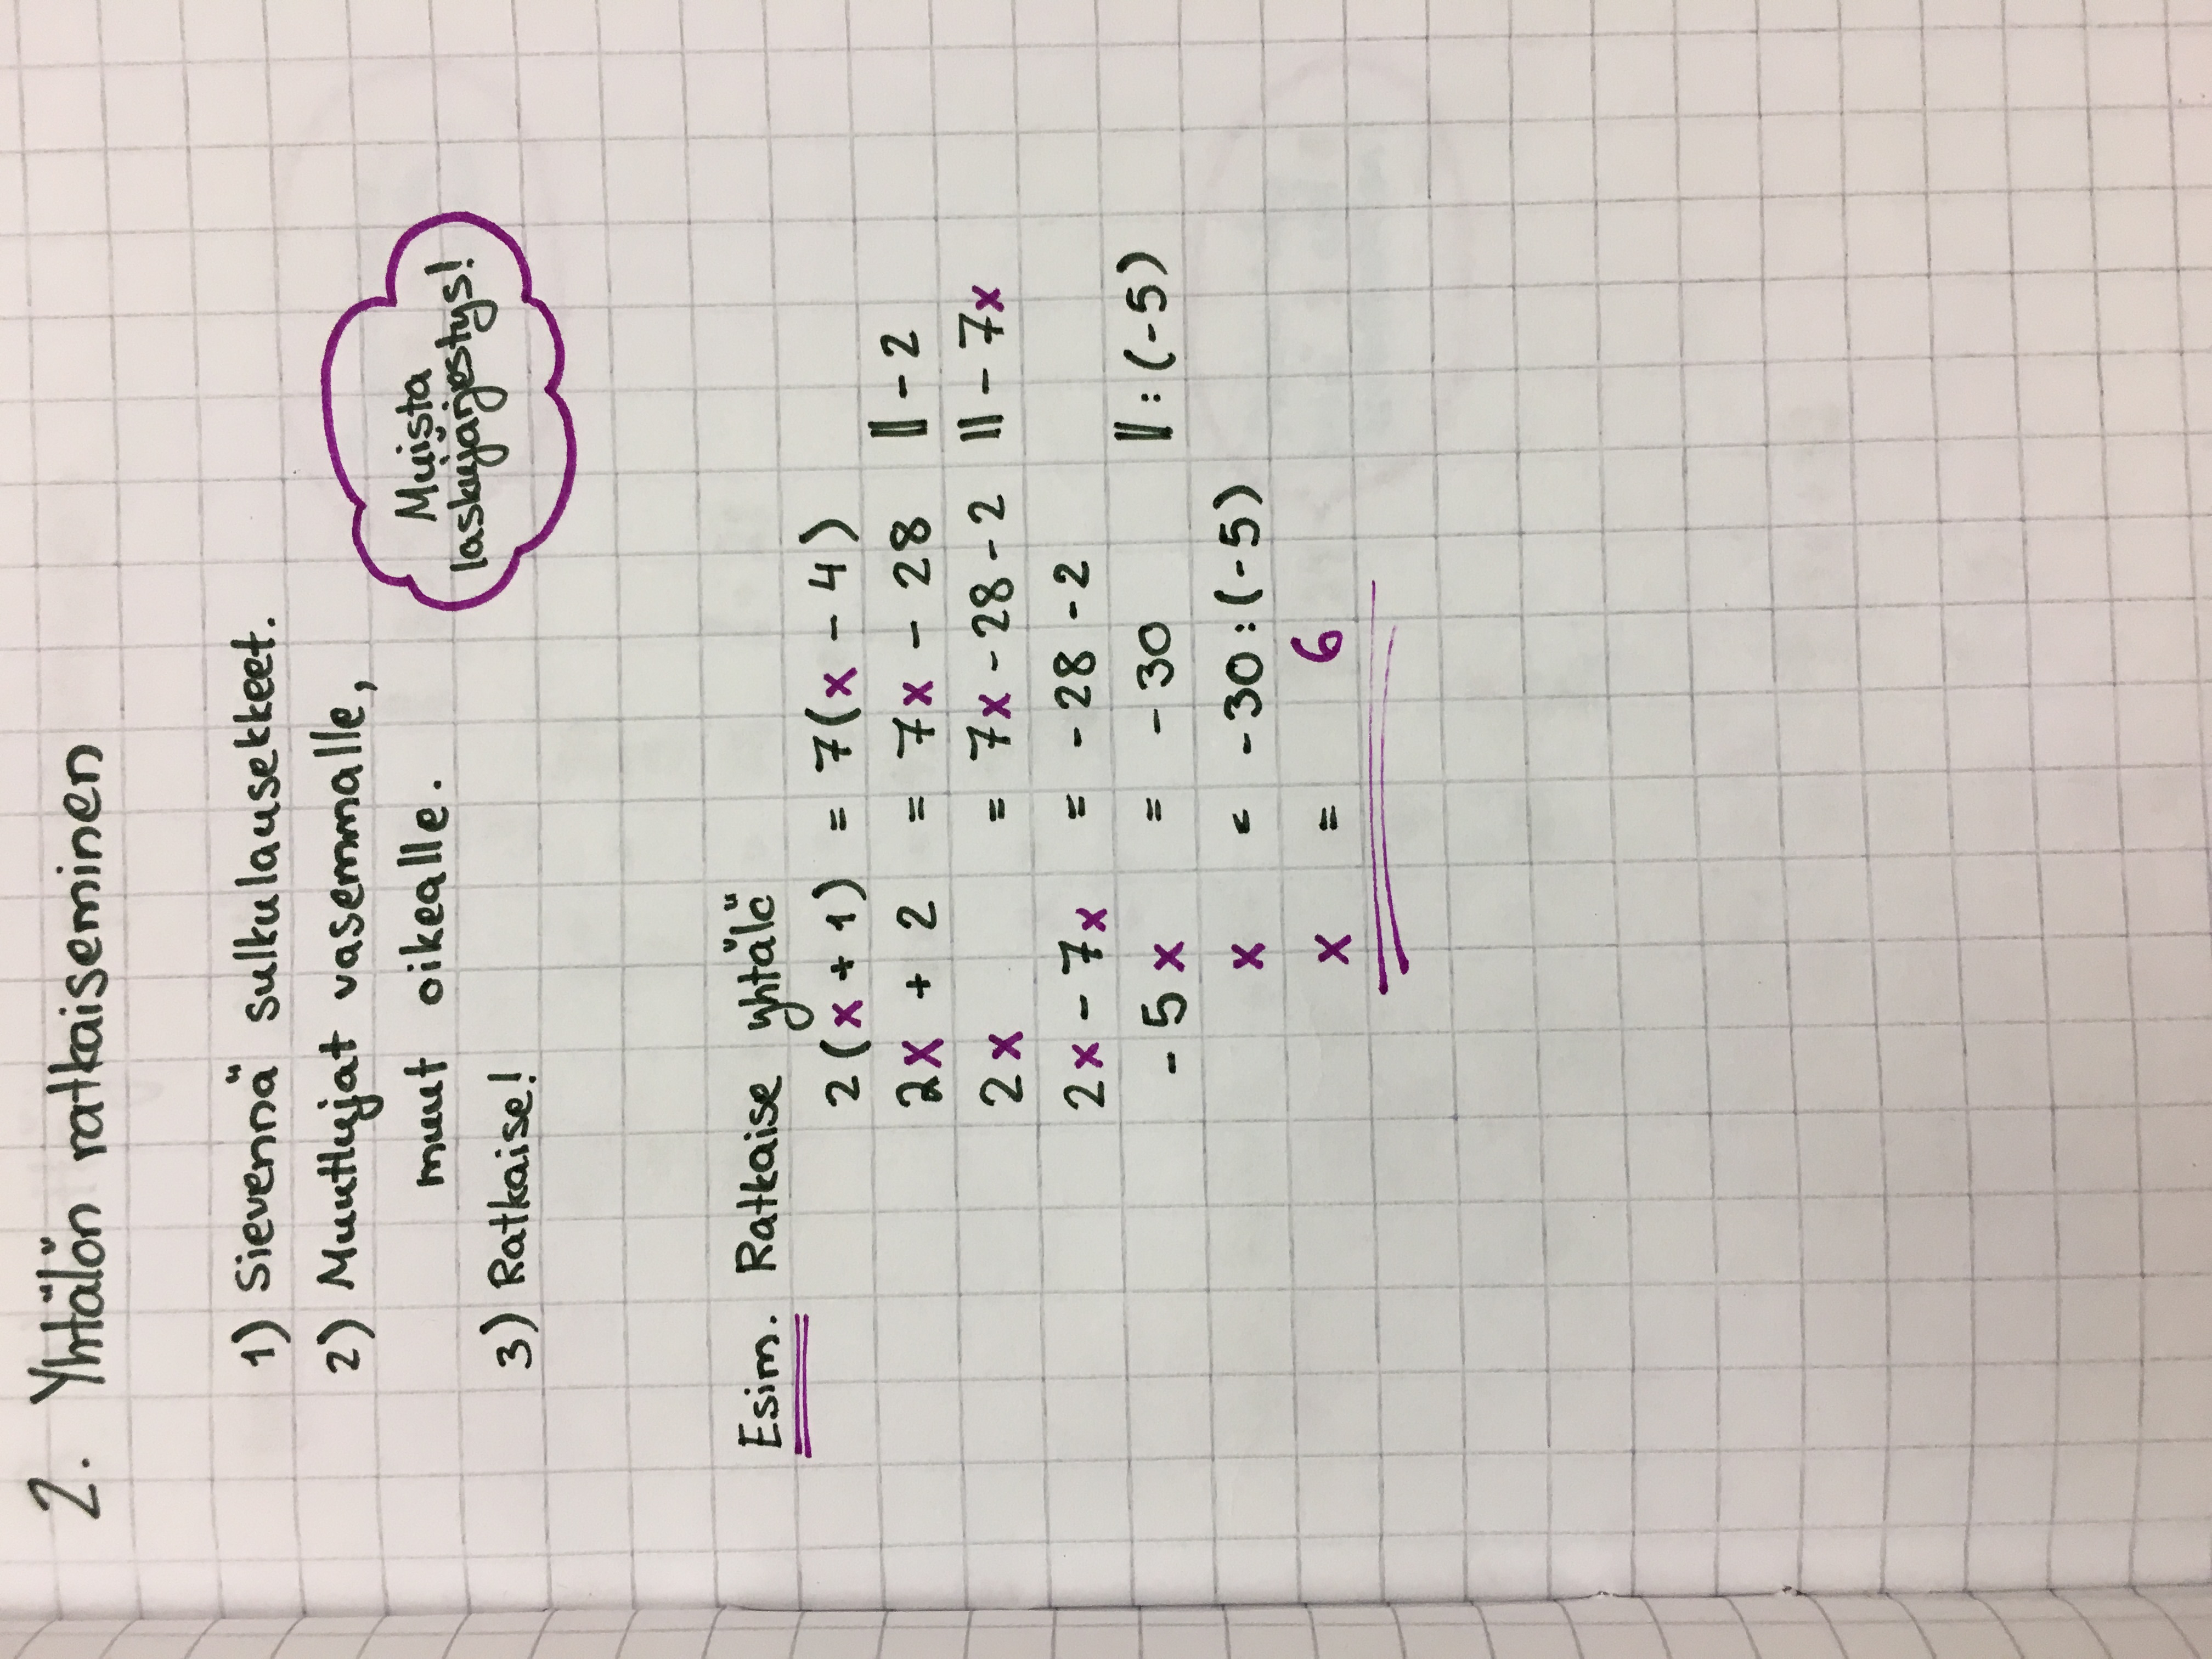 2. Yhtälön ratkaiseminen
1) Sievennä sulkulausekkeet.
2) Muuttujat vasemmalle,
muut oikealle.
3) Ratkaise!
Muista
laskujärjestys!
Esim. Ratkaise yhtälö
2(x + 1) = 7(x - 4)
2x + 2 = 7x - 28 || - 2
2x = 7x - 28 - 2 || - 7x
2x - 7x = - 28 - 2
- 5x = - 30 || : (-5)
x = - 30 : (-5)
x = 6